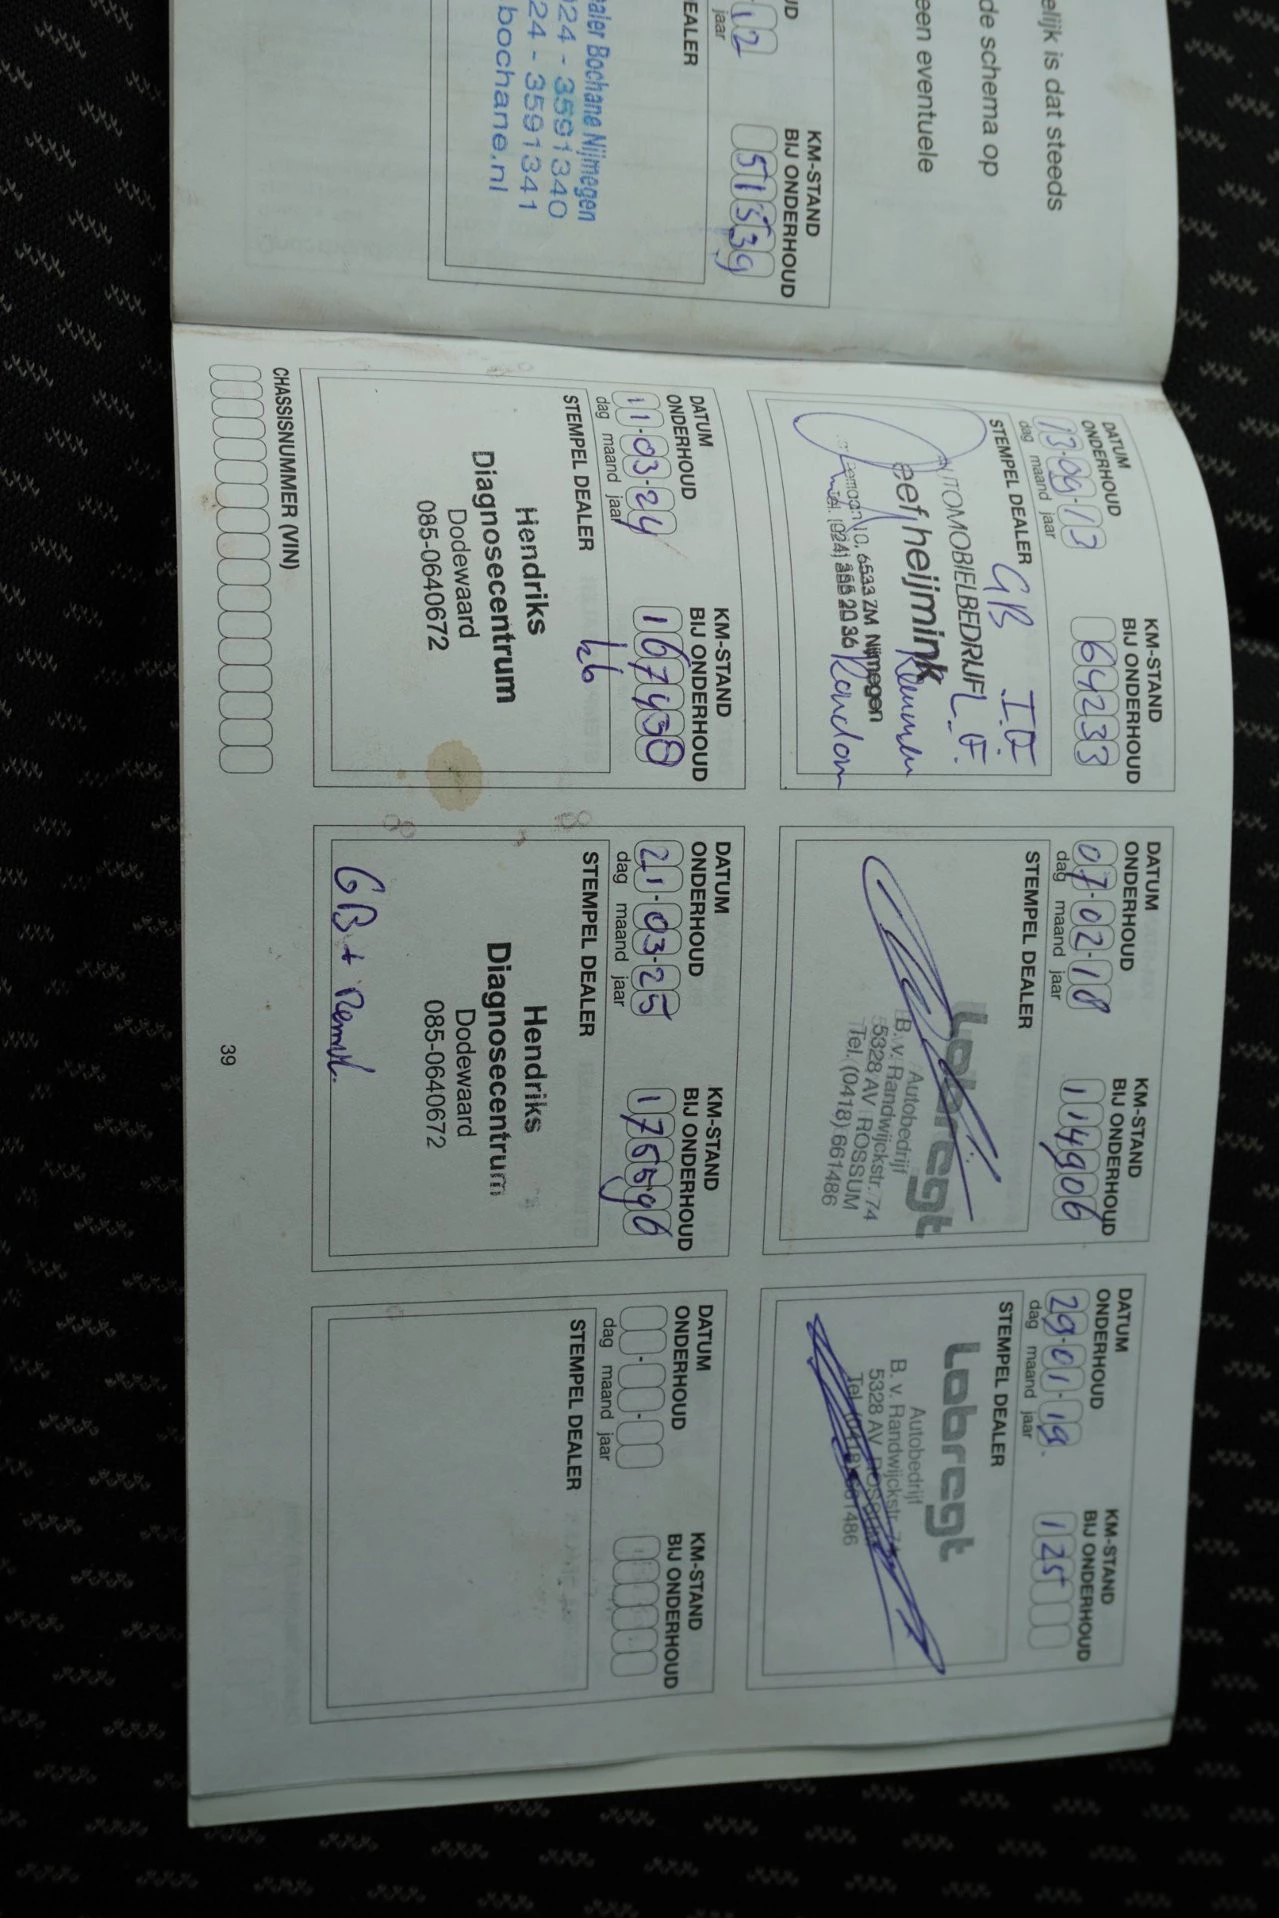 elijk is dat steeds
de schema op
een eventuele
KM-STAND
BIJ ONDERHOUD
12
51539
jaar
EALER
ealer Bochane Nijmegen
024 - 3591340
24 - 3591341
bochane.nl
DATUM
ONDERHOUD
KM-STAND
BIJ ONDERHOUD
13-09-13
64233
dag maand jaar
STEMPEL DEALER
GB
AUTOMOBIELBEDRIJF
eef heijmink
6533 ZM Nijmegen
Tel. (024)
Rondom
DATUM
ONDERHOUD
KM-STAND
BIJ ONDERHOUD
07-02-18
114906
dag maand jaar
STEMPEL DEALER
Labregt
Autobedrijf
B. v. Randwijckstr. 74
5328 AV ROSSUM
Tel. (0418) 661486
DATUM
ONDERHOUD
KM-STAND
BIJ ONDERHOUD
29-01-19
125
dag maand jaar
STEMPEL DEALER
Labregt
Autobedrijf
B. v. Randwijckstr. 74
5328 AV ROSSUM
Tel. (0418) 661486
DATUM
ONDERHOUD
KM-STAND
BIJ ONDERHOUD
11-03-24
167430
dag maand jaar
STEMPEL DEALER
Hendriks
Diagnosecentrum
Dodewaard
085-0640672
DATUM
ONDERHOUD
KM-STAND
BIJ ONDERHOUD
21-03-25
175596
dag maand jaar
STEMPEL DEALER
Hendriks
Diagnosecentrum
Dodewaard
085-0640672
GB +
DATUM
ONDERHOUD
KM-STAND
BIJ ONDERHOUD
dag maand jaar
STEMPEL DEALER
CHASSISNUMMER (VIN)
39